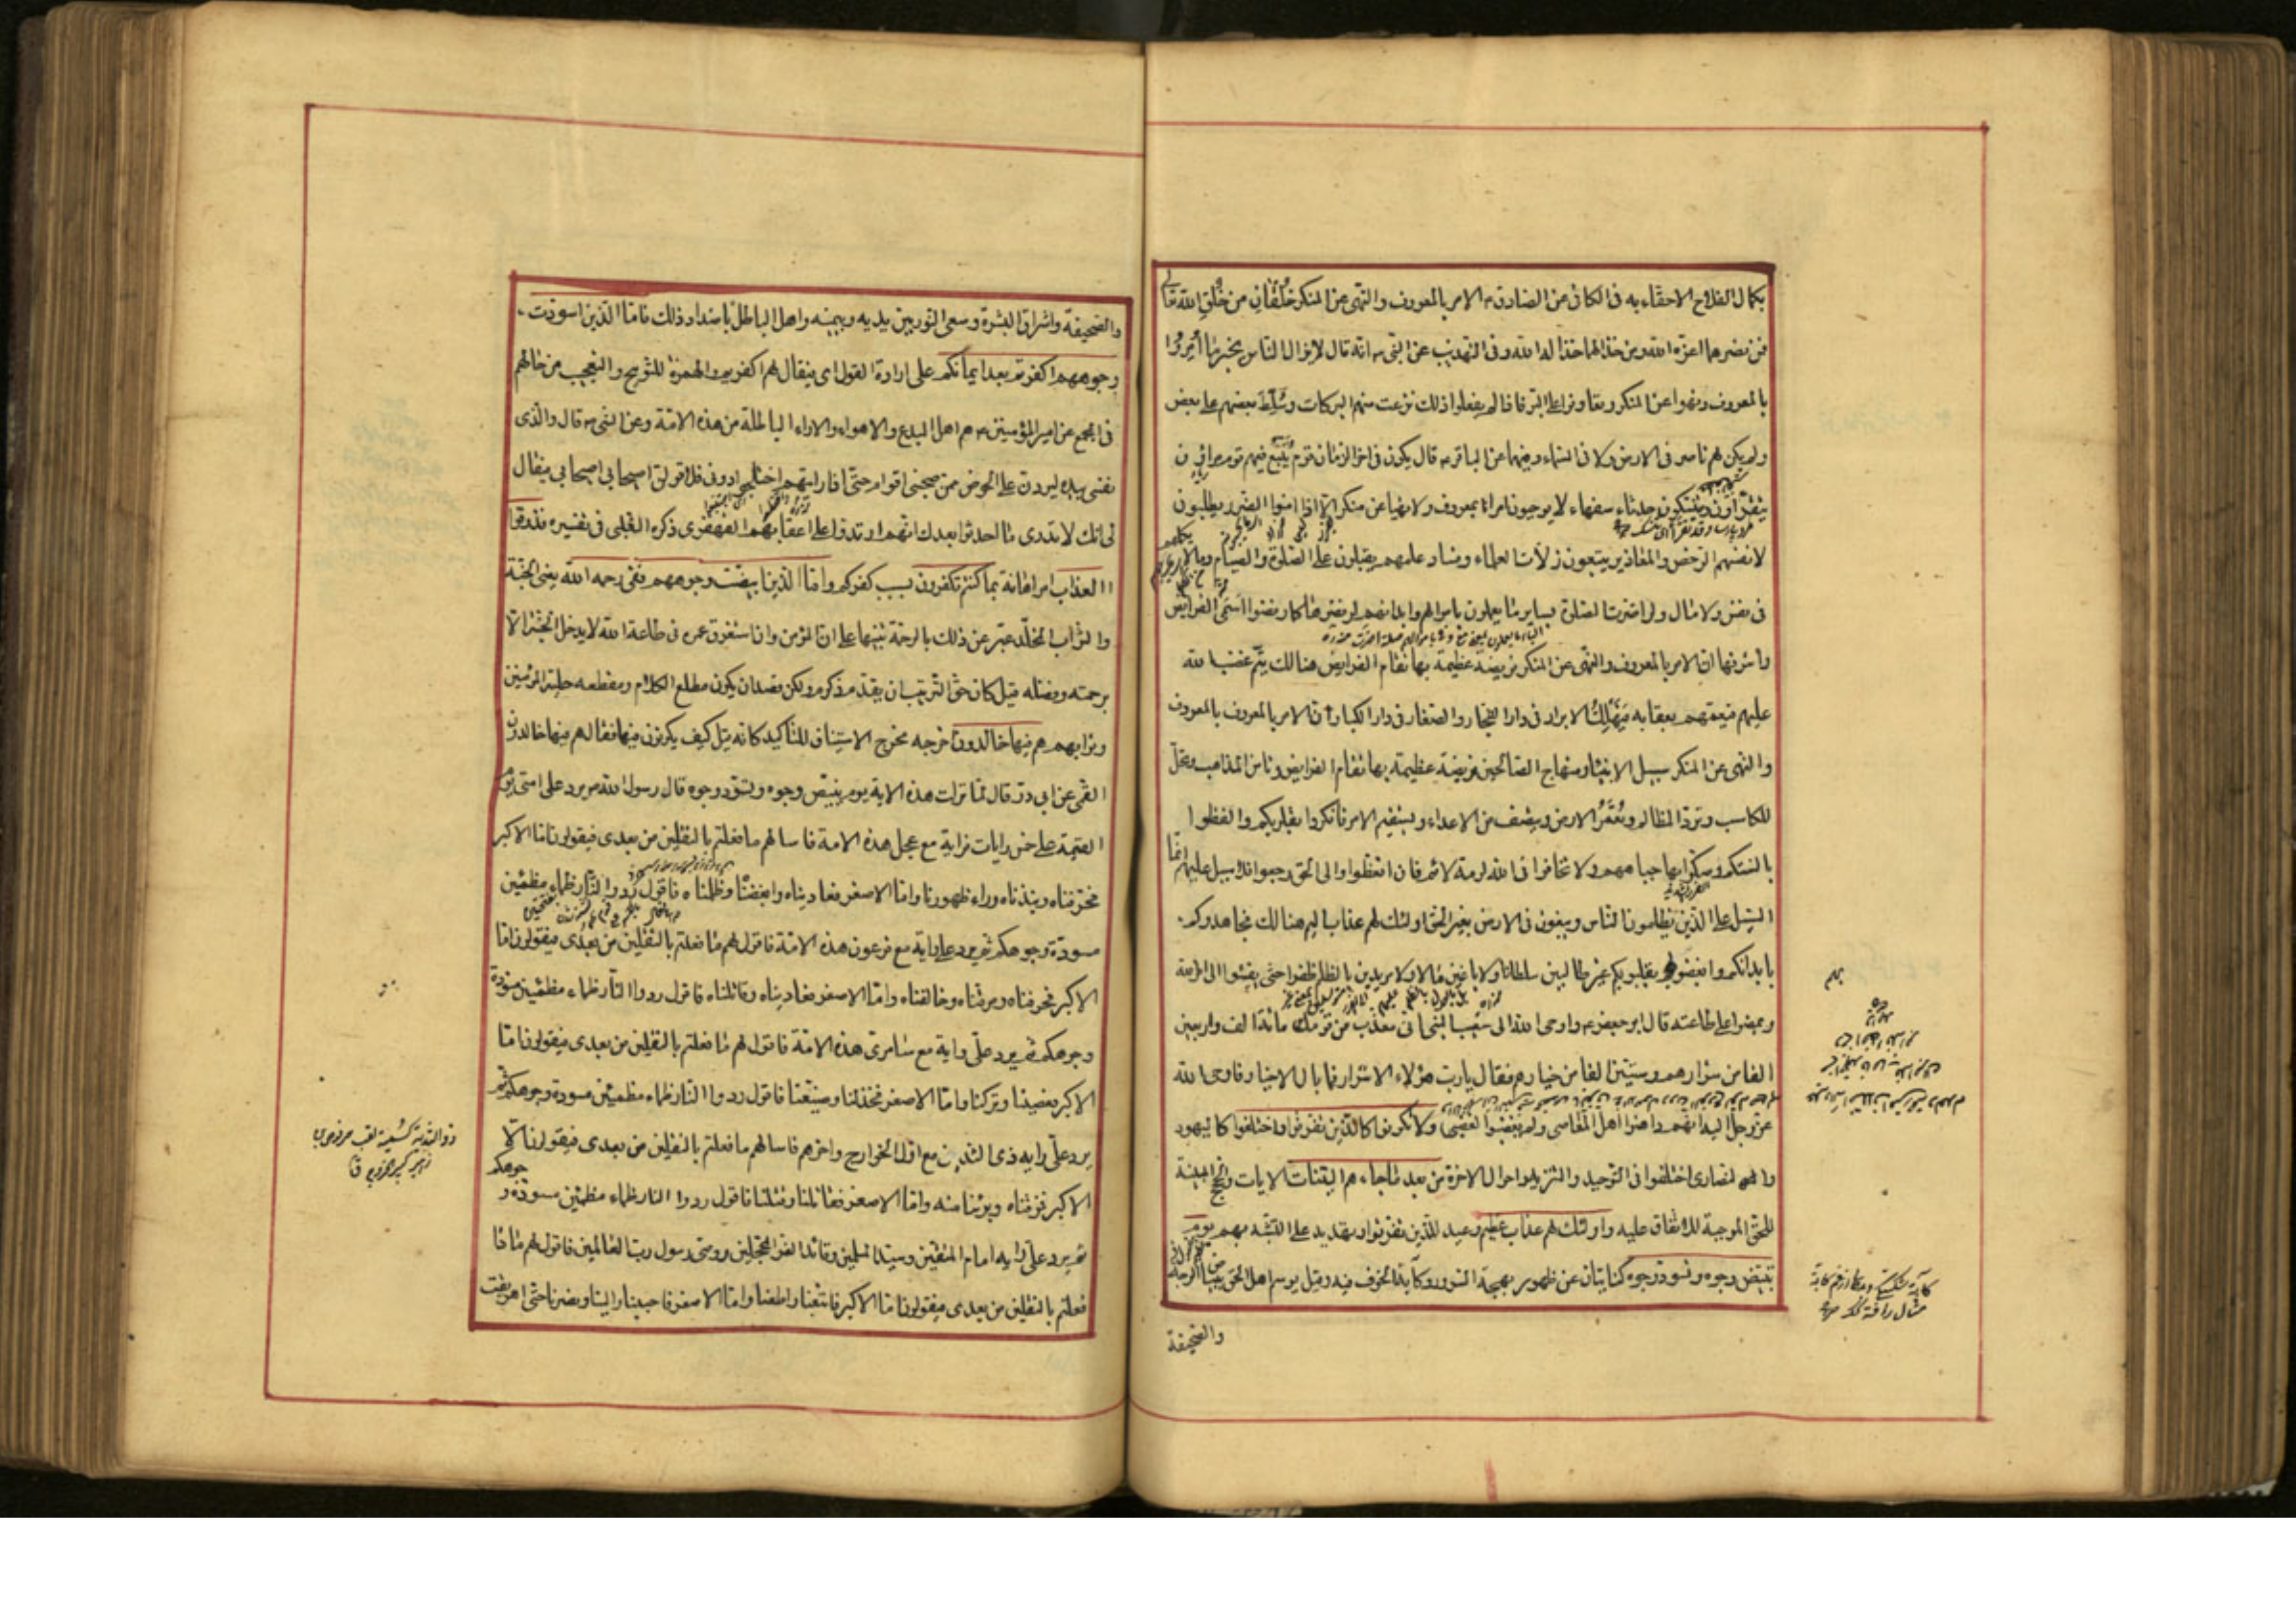 بكمال الفلاح الاحقاء به فى الكافى عن الصادق ع الامر بالمعروف والنهى عن المنكر خُلُقان من خُلق الله تعالى
فمن نصرهما اعزه الله ومن خذلهما خذله الله وفى التهذيب عن النبى ص انه قال لا يزال الناس بخير ما أمروا
بالمعروف ونهوا عن المنكر وتعاونوا على البر فاذا لم يفعلوا ذلك نزعت منهم البركات وسُلّط بعضهم على بعض
ولم يكن لهم ناصر فى الارض ولا فى السماء وفيهما عن الباقر ع قال يكون فى اخر الزمان قوم يُتّبع فيهم قوم مراؤن
يتقرّاون ويتنسكون حدثاء سفهاء لا يوجبون امرا بمعروف ولا نهيا عن منكر الا اذا امنوا الضرر يطلبون
لانفسهم الرخص والمعاذير يتبعون زلات العلماء وفساد علمهم يقبلون على الصلوة والصيام وما لا يكلمهم
فى نفس ولا مال ولو اضرت الصلوة بساير ما يعملون باموالهم وابدانهم لرفضوها كما رفضوا اسمى الفرايض
واشرفها ان الامر بالمعروف والنهى عن المنكر فريضة عظيمة بها تقام الفرايض هنالك يتم غضب الله
عليهم فيعمهم بعقابه فيهلك الابرار فى دار الفجار والصغار فى دار الكبار ان الامر بالمعروف
والنهى عن المنكر سبيل الانبياء ومنهاج الصالحين فريضة عظيمة بها تقام الفرايض وتامن المذاهب وتحل
المكاسب وترد المظالم وتُعمّر الارض وينتصف من الاعداء ويستقيم الامر فانكروا بقلوبكم والفظوا
بالسنتكم وصكوا بها جباههم ولا تخافوا فى الله لومة لائم فان اتعظوا والى الحق رجعوا فلا سبيل عليهم انما
السبيل على الذين يظلمون الناس ويبغون فى الارض بغير الحق اولئك لهم عذاب اليم هنالك فجاهدوهم
بابدانكم وابغضوهم بقلوبكم غير طالبين سلطانا ولا باغين مالا ولا مريدين بالظلم ظفرا حتى يفيئوا الى امر الله
ويمضوا على طاعته قال ابو جعفر ع واوحى الله الى شعيب النبى انى معذب من قومك مائة الف واربعين
الفا من شرارهم وستين الفا من خيارهم فقال يا رب هؤلاء الاشرار فما بال الاخيار فاوحى الله
عز وجل اليه انهم داهنوا اهل المعاصى ولم يغضبوا لغضبى ولا تكونوا كالذين تفرقوا واختلفوا كاليهود
والنصارى اختلفوا فى التوحيد والتنزيه واحوال الاخرة من بعد ما جاءهم البينات الايات والحجج المبينة
للحق الموجبة للاتفاق عليه واولئك لهم عذاب عظيم وعيد للذين تفرقوا وتهديد على التشبه بهم يوم
تبيض وجوه وتسود وجوه كنايتان عن ظهور بهجة السرور وكآبة الخوف فيه وقيل يوسم اهل الحق ببياض الوجه
والصحيفة
والصحيفة واشراق البشرة وسعى النور بين يديه وبيمينه واهل الباطل باضداد ذلك فاما الذين اسودت
وجوههم اكفرتم بعد ايمانكم على ارادة القول اى فيقال لهم اكفرتم والهمزة للتوبيخ والتعجيب من حالهم
فى المجمع عن امير المؤمنين ع هم اهل البدع والاهواء والاراء الباطلة من هذه الامة وعن النبى ص قال والذى
نفسى بيده ليردن على الحوض ممن صحبنى اقوام حتى اذا رايتهم اختلجوا دونى فلاقولن اصيحابى اصيحابى فيقال
لى انك لا تدرى ما احدثوا بعدك انهم ارتدوا على اعقابهم القهقرى ذكره الثعلبى فى تفسيره فذوقوا
العذاب امر اهانة بما كنتم تكفرون بسبب كفركم واما الذين ابيضت وجوههم ففى رحمة الله يعنى الجنة
والثواب المخلد عبر عن ذلك بالرحمة تنبيها على ان المؤمن وان استغرق عمره فى طاعة الله لا يدخل الجنة الا
برحمته وفضله قيل كان حق الترتيب ان يقدم ذكرهم ولكن قصد ان يكون مطلع الكلام ومقطعه حلية المؤمنين
وثوابهم هم فيها خالدون اخرجه مخرج الاستيناف للتاكيد كانه قيل كيف يكونون فيها فقال هم فيها خالدون
القمى عن ابى ذر قال لما نزلت هذه الاية يوم تبيض وجوه وتسود وجوه قال رسول الله ص يرد على امتى يوم
القيمة على خمس رايات فراية مع عجل هذه الامة فاسالهم ما فعلتم بالثقلين من بعدى فيقولون اما الاكبر
فحرفناه ونبذناه وراء ظهورنا واما الاصغر فعاديناه وابغضناه وظلمناه فاقول رِدوا النار ظماء مظمئين
مسودة وجوهكم ثم يرد على راية مع فرعون هذه الامة فاقول لهم ما فعلتم بالثقلين من بعدى فيقولون اما
الاكبر فحرفناه ومزقناه وخالفناه واما الاصغر فعاديناه وقاتلناه فاقول ردوا النار ظماء مظمئين مسودة
وجوهكم ثم يرد على راية مع سامرى هذه الامة فاقول لهم ما فعلتم بالثقلين من بعدى فيقولون اما
الاكبر فعصينا وتركنا واما الاصغر فخذلنا وضيعنا فاقول ردوا النار ظماء مظمئين مسودة وجوهكم ثم
يرد على راية ذى الثدية مع اول الخوارج واخرهم فاسالهم ما فعلتم بالثقلين من بعدى فيقولون اما
الاكبر فمزقناه وبرئنا منه واما الاصغر فقاتلنا وقتلنا فاقول ردوا النار ظماء مظمئين مسودة وجوهكم
ثم يرد على راية امام المتقين وسيد المسلمين وقائد الغر المحجلين ووصى رسول رب العالمين فاقول لهم ماذا
فعلتم بالثقلين من بعدى فيقولون اما الاكبر فاتبعنا واطعنا واما الاصغر فاحببنا والينا ونصرنا حتى اهريقت